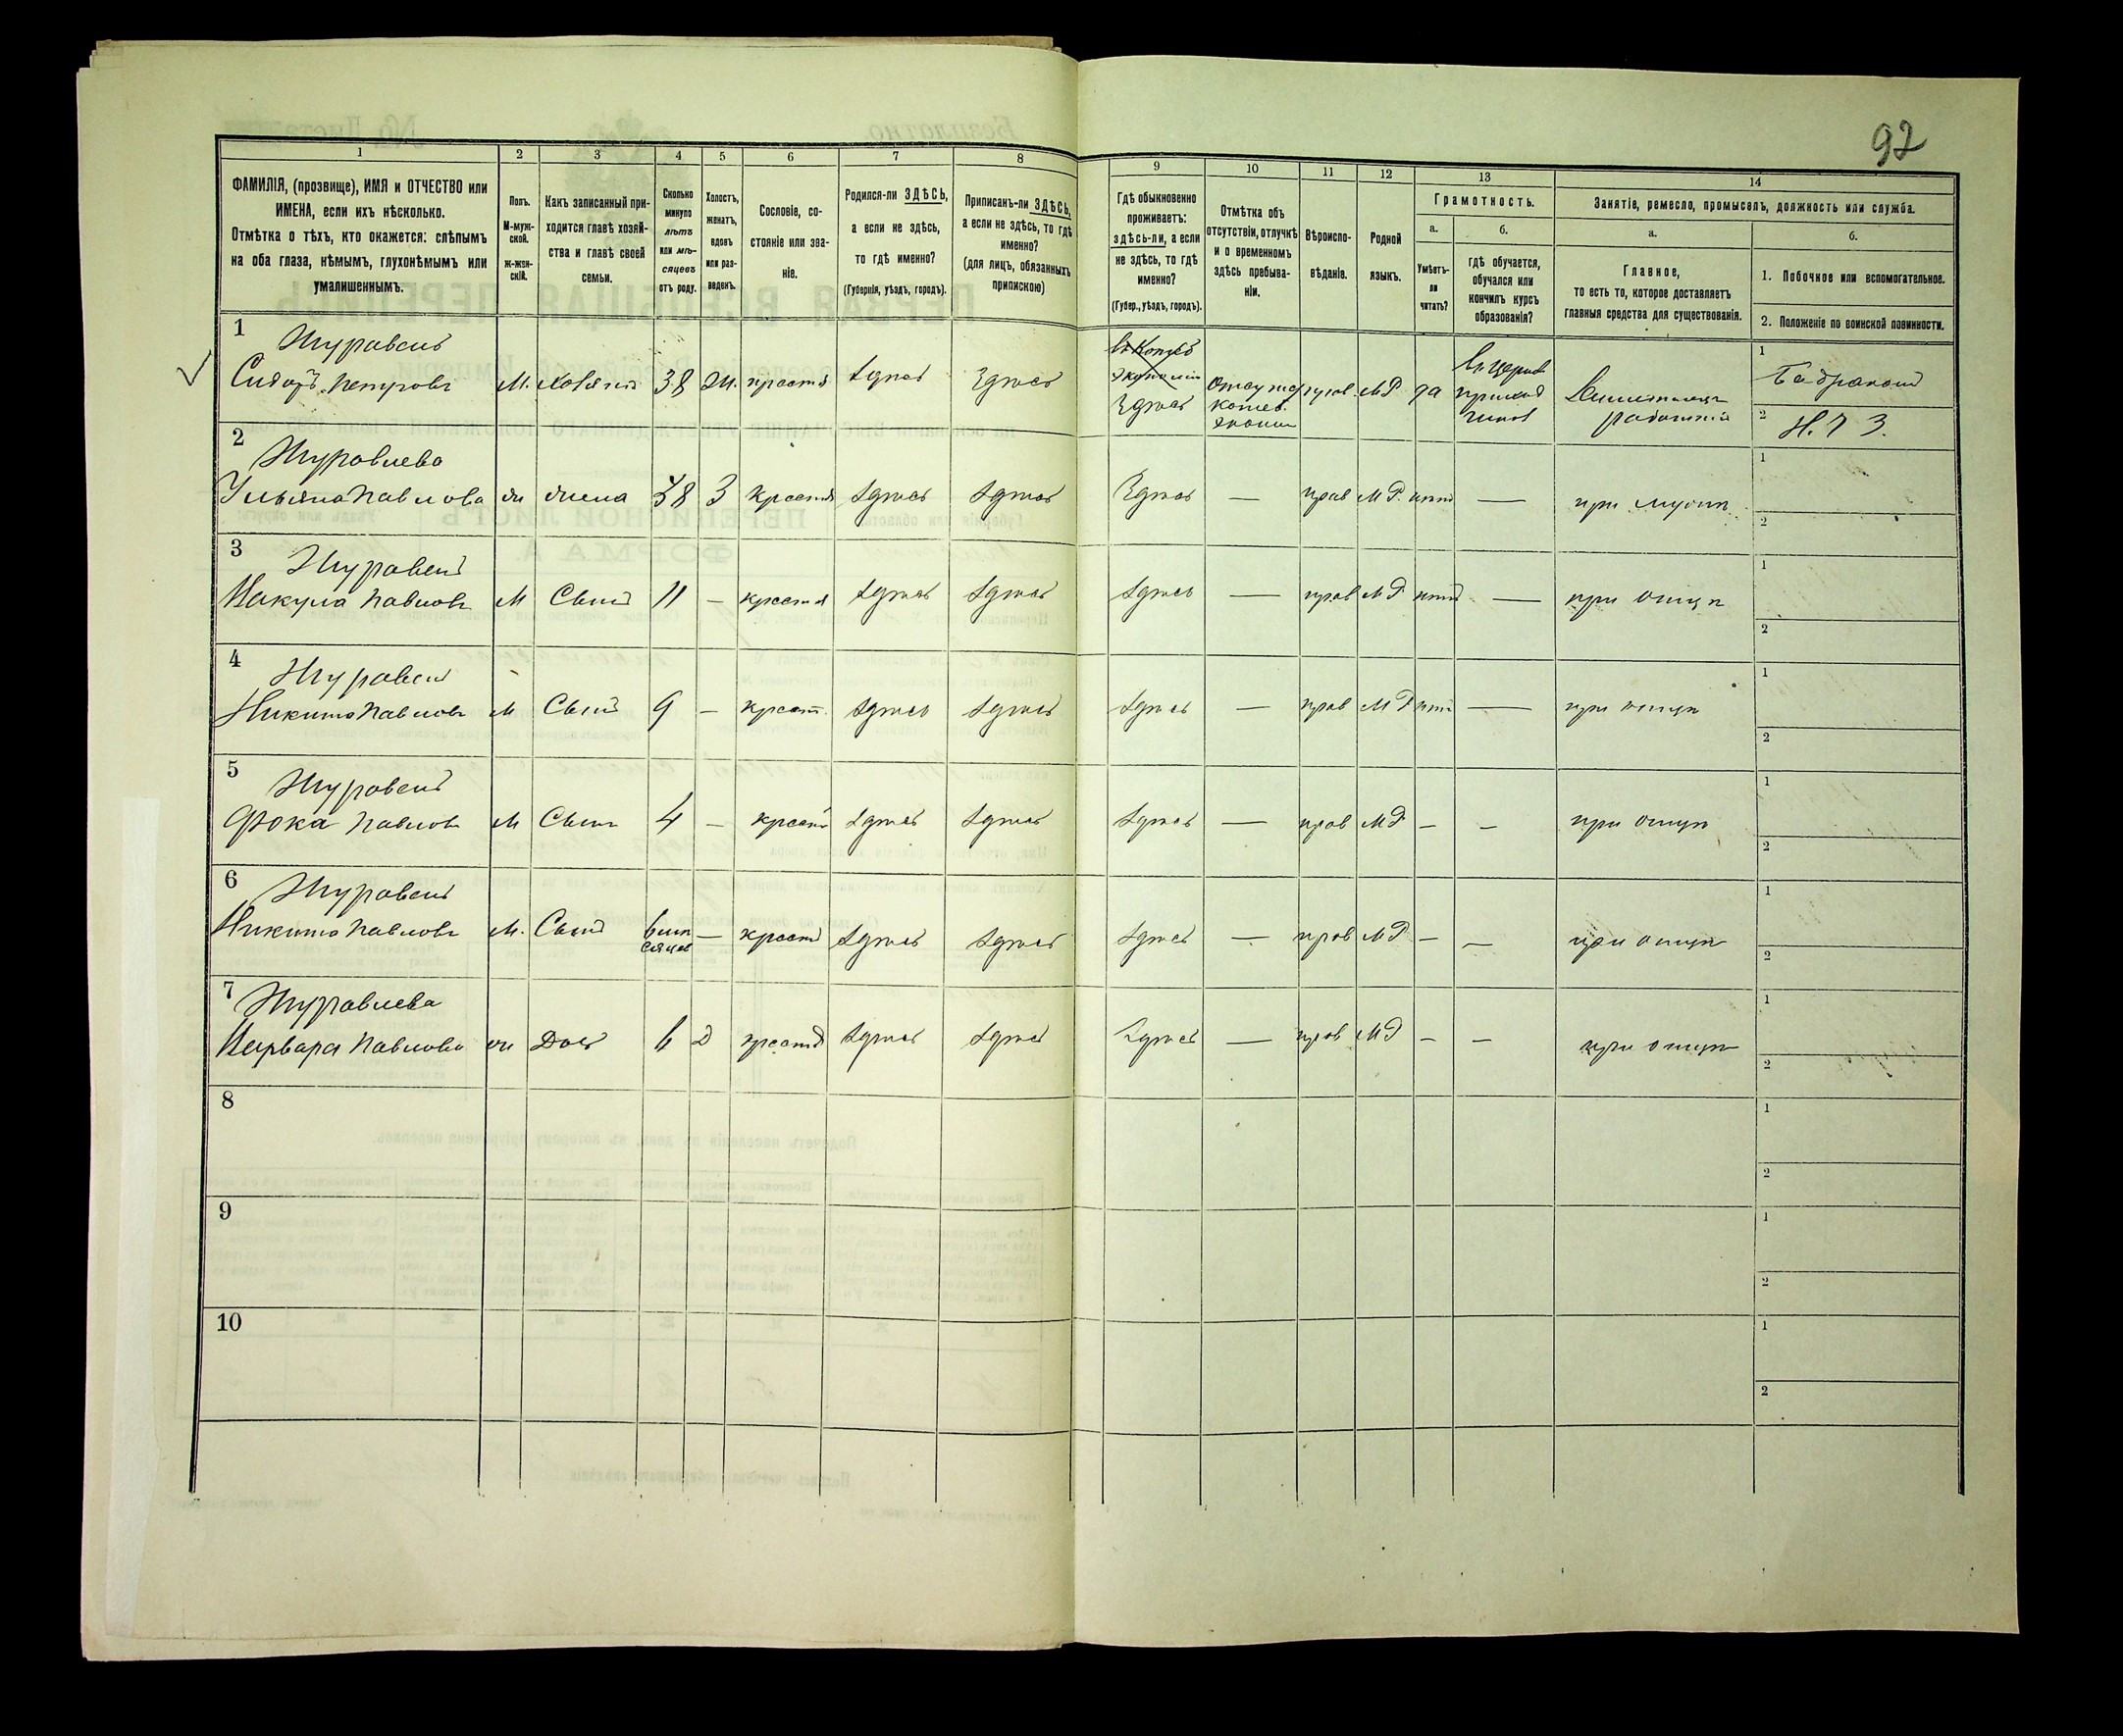 92
1
2
3
4
5
6
7
8
9
10
11
12
13
14
ФАМИЛІЯ, (прозвище), ИМЯ и ОТЧЕСТВО или
ИМЕНА, если ихъ нѣсколько.
Отмѣтка о тѣхъ, кто окажется: слѣпымъ
на оба глаза, нѣмымъ, глухонѣмымъ или
умалишеннымъ.
Полъ.
М-муж-
ской.
ж-жен-
скій.
Какъ записанный при-
ходится главѣ хозяй-
ства и главѣ своей
семьи.
Сколько
минуло
лѣтъ
или мѣ-
сяцевъ
отъ роду.
Холостъ,
женатъ,
вдовъ
или раз-
веденъ.
Сословіе, со-
стояніе или зва-
ніе.
Родился-ли ЗДѢСЬ,
а если не здѣсь,
то гдѣ именно?
(Губернія, уѣздъ, городъ).
Приписанъ-ли ЗДѢСЬ,
а если не здѣсь, то гдѣ
именно?
(для лицъ, обязанныхъ
припискою)
Гдѣ обыкновенно
проживаетъ:
здѣсь-ли, а если
не здѣсь, то гдѣ
именно?
(Губер., уѣздъ, городъ).
Отмѣтка объ
отсутствіи, отлучкѣ
и о временномъ
здѣсь пребыва-
ніи.
Вѣроиспо-
вѣданіе.
Родной
языкъ.
Грамотность.
а.
Умѣетъ-
ли
читать?
б.
гдѣ обучается,
обучался или
кончилъ курсъ
образованія?
Занятіе, ремесло, промыселъ, должность или служба.
а.
Главное,
то есть то, которое доставляетъ
главныя средства для существованія.
б.
1. Побочное или вспомогательное.
2. Положеніе по воинской повинности.
1
Журавель
Сидоръ Петровъ М. Хозяинъ 38 Ж. крестя Здѣсь Здѣсь Здѣсь МР да
2
Журавлева
Ульяна Павлова ж жена 38 З крестя Здѣсь Здѣсь Здѣсь — прав МР нѣтъ — при мужѣ
3
Журавель
Вакула Павловъ М Сынъ 11 — крестя Здѣсь Здѣсь Здѣсь — прав МР нѣтъ — при отцѣ
4
Журавель
Никита Павловъ М Сынъ 9 — крест. Здѣсь Здѣсь Здѣсь — прав МР нѣтъ — при отцѣ
5
Журавель
Фока Павловъ М Сынъ 4 — крест Здѣсь Здѣсь Здѣсь — прав МР — — при отцѣ
6
Журавель
Никита Павловъ М. Сынъ 6 мѣ
сяцев — крест Здѣсь Здѣсь Здѣсь — прав МР — — при отцѣ
7
Журавлева
Варвара Павлова ж Доч 6 Д крестя Здѣсь Здѣсь Здѣсь — прав МР — — при отцѣ
8
9
10